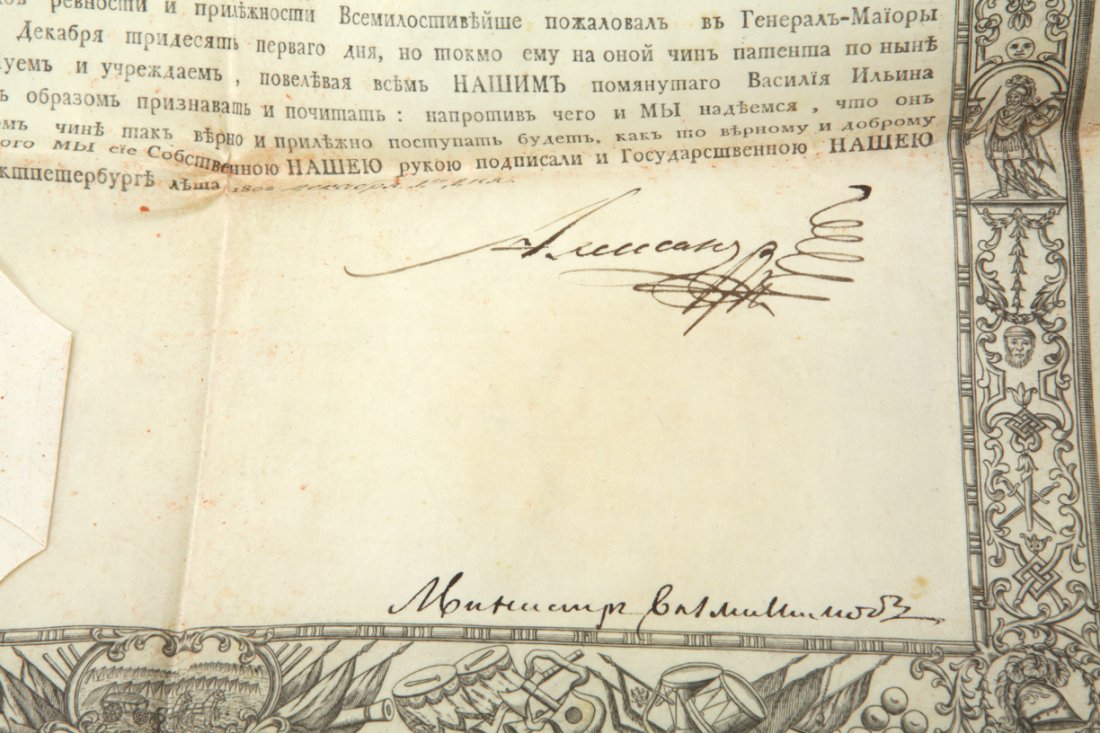 ревности и прилѣжности Всемилостивѣйше пожаловалъ въ Генералъ-Маіоры
Декабря тридесять перваго дня, но токмо ему на оной чинъ патента по нынѣ
уемъ и учреждаемъ, повелѣвая всѣмъ НАШИМЪ помянутаго Василія Ильина
ъ образомъ признавать и почитать: напротивъ чего и МЫ надѣемся, что онъ
омъ чинѣ такъ вѣрно и прилѣжно поступать будетъ, какъ то вѣрному и доброму
ого МЫ сіе Собственною НАШЕЮ рукою подписали и Государственною НАШЕЮ
ктпетербургѣ лѣта
Александръ
Министръ